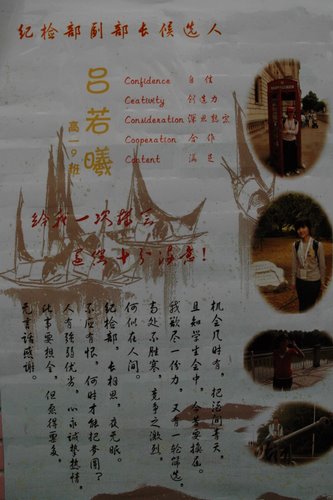 纪检部副部长候选人
吕若曦
高一9班
Confidence 自信
Ceativity 创造力
Consideration 深思熟虑
Cooperation 合作
Content 满足
给我一次机会
还您十分满意!
机会几时有,把酒问青天,
且知学生会中,今年要换届。
我欲尽一份力,又有一轮筛选,
高处不胜寒,竞争之激烈,
何似在人间。
纪检部,长相思,夜无眠。
不应有恨,何时才能把梦圆?
人有强弱优劣,心永诚挚热情,
此事要想全,但愿得票多,
无言语感谢。